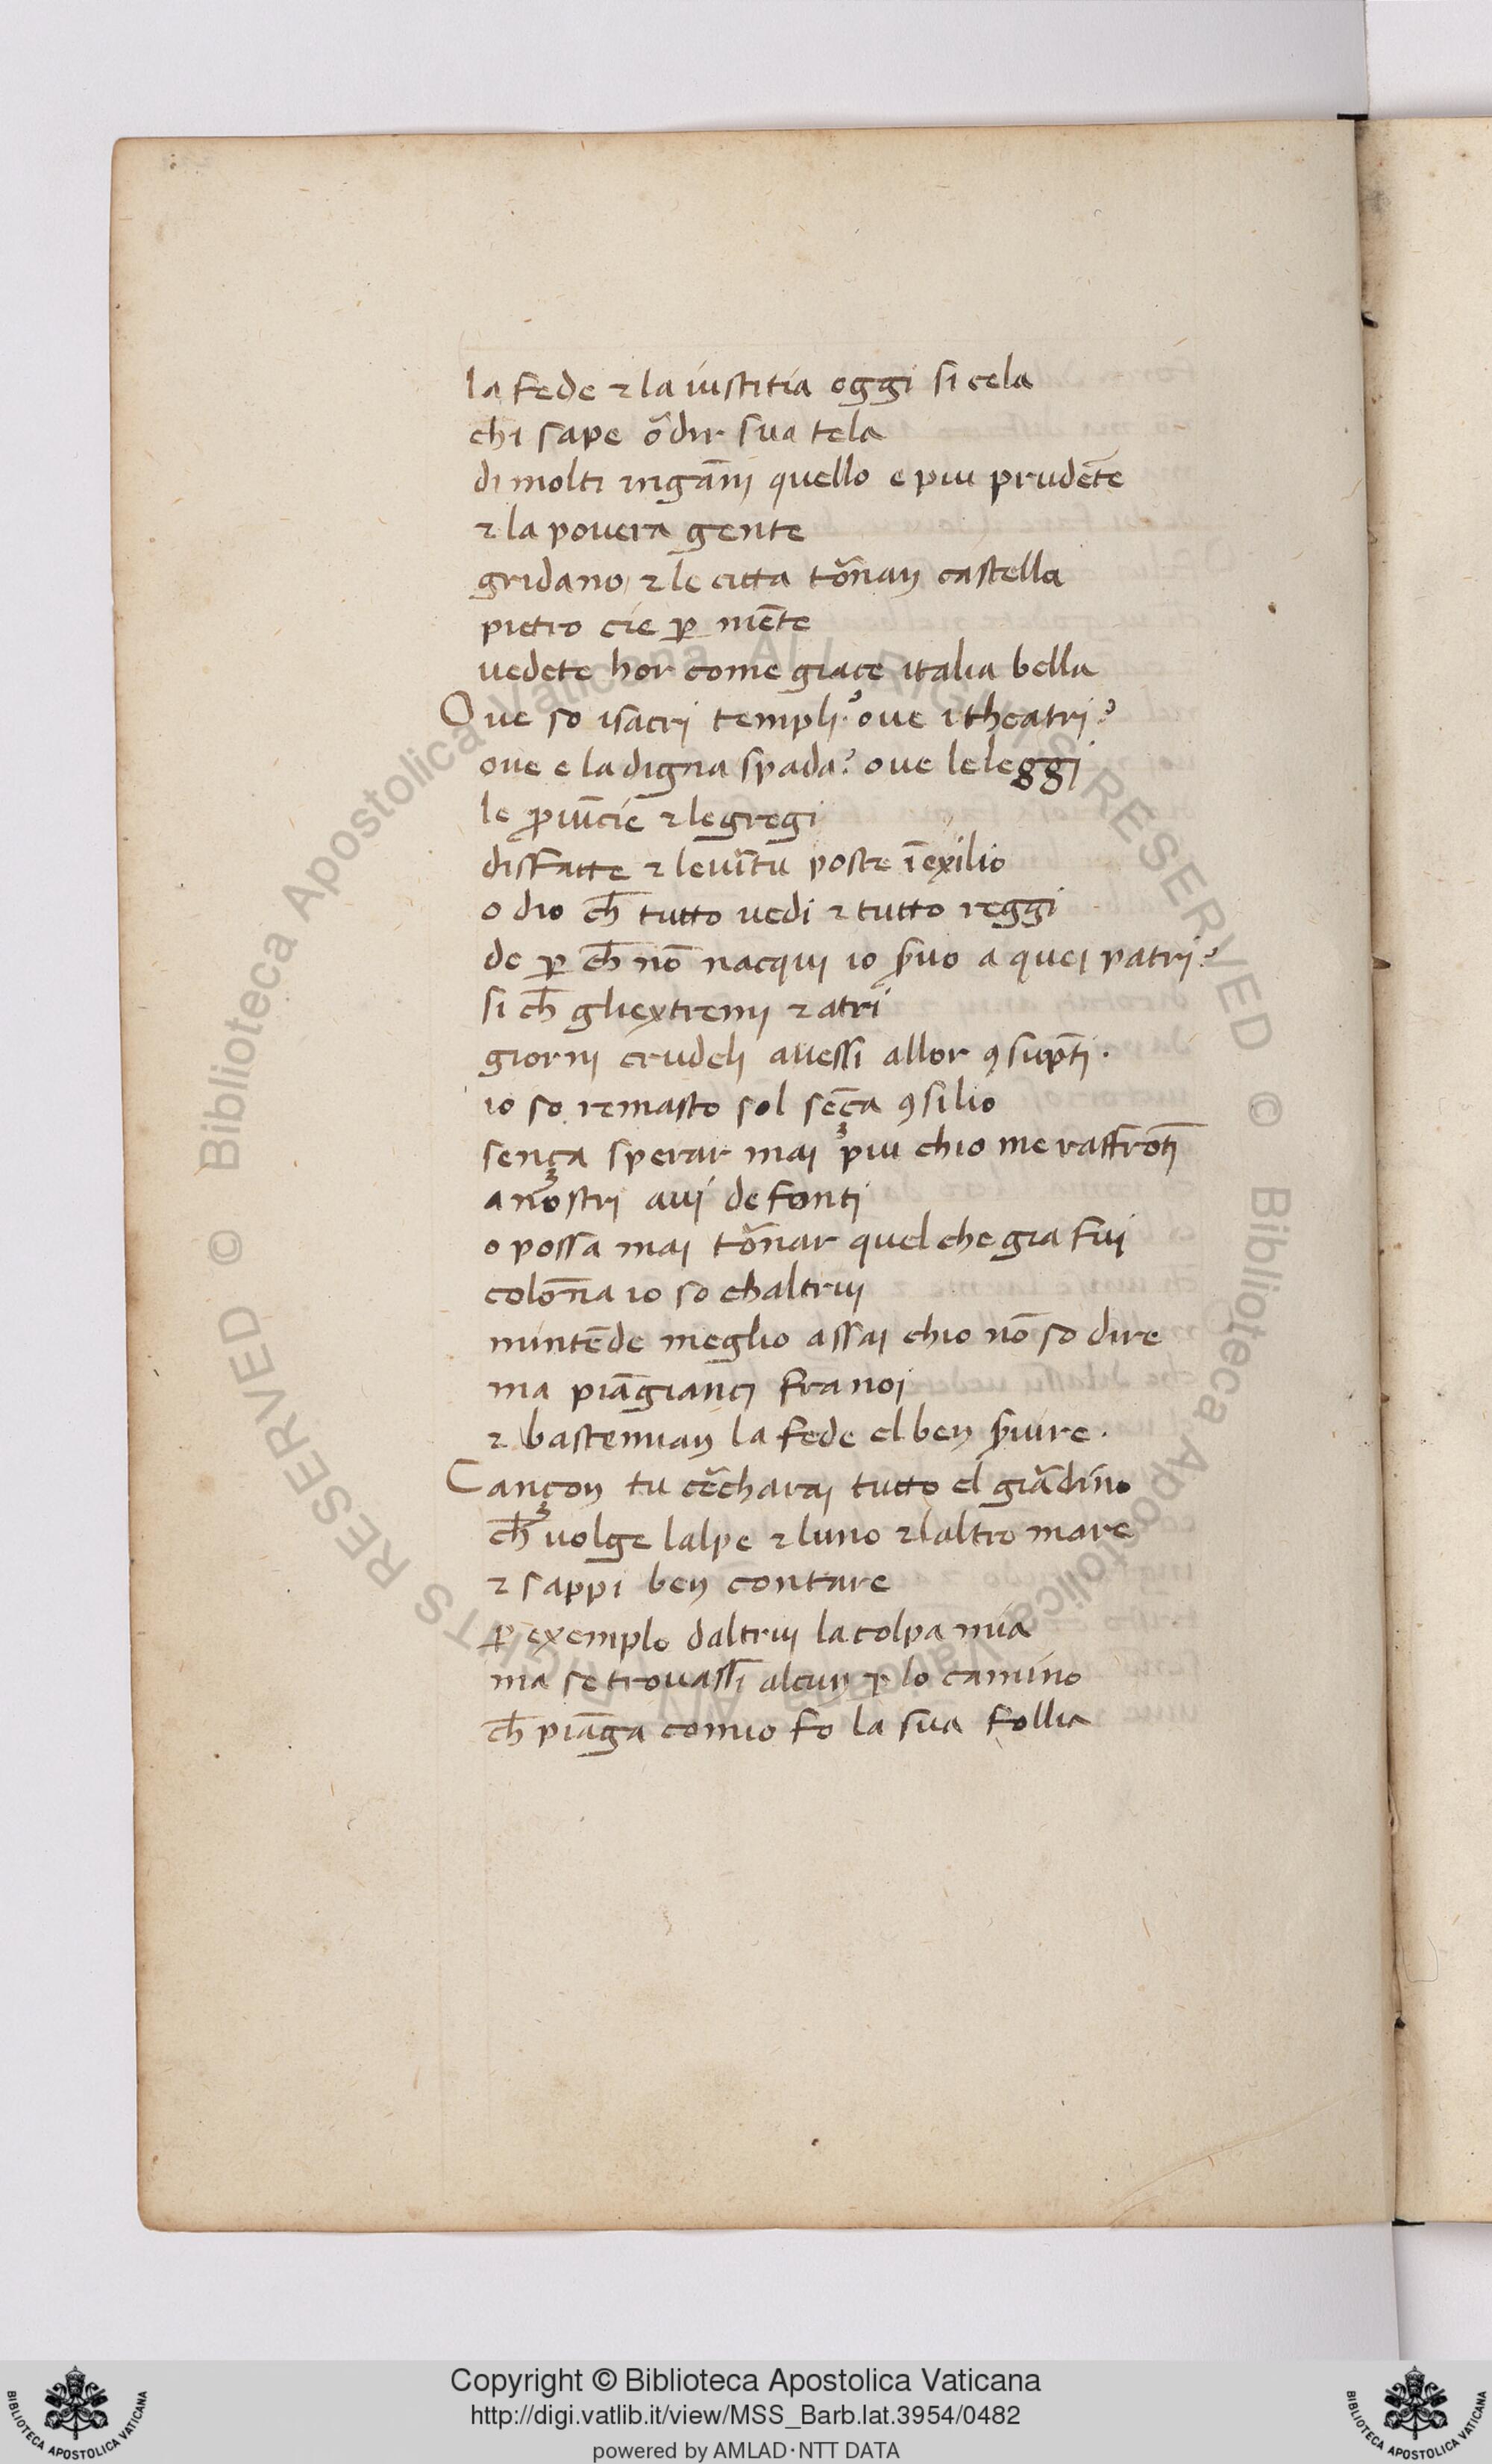 la fede ⁊ la iustitia oggi si cela
chi sape o᷑dir sua tela
di molti ingāni quello e piu prudēte
⁊ la pouera gente
gridano ⁊ le citta to᷑nan castella
pietro cie ꝑ niēte
uedete hor come giace italia bella
Oue so isacri templi? oue itheatri?
oue e la digna spada? oue leleggi
le ꝓuīcie ⁊ legregi
disfatte ⁊ leui᷑tu poste ī exilio
o dio ch̄ tutto uedi ⁊ tutto reggi
de ꝑ ch̄ nō nacqui io s̄uo a quei patri?
si ch̄ gliextremi ⁊ atri
giorni crudeli auessi allor ꝯsūpti.
io so remasto sol sēça ꝯsilio
sença sperar mai piu chio me raffrōti
a nostri aui de fonti
o possa mai to᷑nar quel che gia fui
colōna io so chaltrui
nintēde meglio assai chio nō so dire
ma piāgianci fra noi
⁊ bastemian la fede el ben s̄uire.
Cançon tu ce᷑charai tutto el gia᷑dino
ch̄ uolge lalpe ⁊ luno ⁊ laltro mare
⁊ sappi ben contare
ꝑ exemplo daltrui la colpa mia
ma se trouassi alcun ꝑ lo camino
ch̄ piāga comio fo la sua follia
© Biblioteca Apostolica Vaticana ALL RIGHTS RESERVED
© Biblioteca Apostolica Vaticana ALL RIGHTS RESERVED
Copyright © Biblioteca Apostolica Vaticana
http://digi.vatlib.it/view/MSS_Barb.lat.3954/0482
powered by AMLAD·NTT DATA
BIBLIOTECA APOSTOLICA VATICANA
BIBLIOTECA APOSTOLICA VATICANA